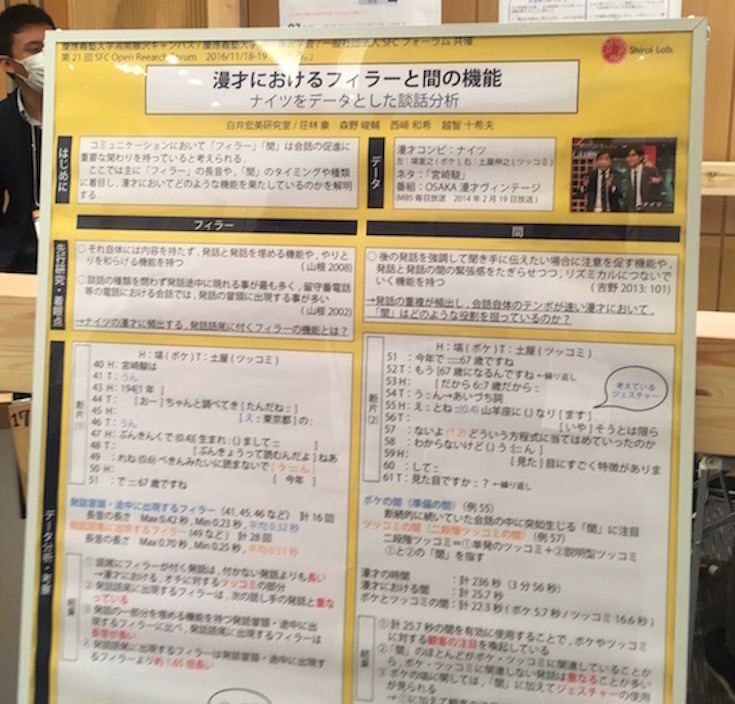 慶應義塾大学湘南藤沢キャンパス / 慶應義塾大学
一般社団法人 SFC フォーラム 共催
第 21 回 SFC Open Reearch Forum 2016/11/18-19
Shiroi Lab.
漫才におけるフィラーと間の機能
ナイツをデータとした談話分析
白井宏美研究室 / 荘林 豪 森野 峻輔 西崎 和希 越智 十希夫
はじめに
コミュニケーションにおいて「フィラー」「間」は会話の促進に
重要な関わりを持っていると考えられる.
ここでは主に「フィラー」の長音や,「間」のタイミングや種類
に着目し,漫才においてどのような機能を果たしているのかを解明
する.
データ
漫才コンビ:ナイツ
左:塙宣之(ボケ), 右:土屋伸之(ツッコミ)
ネタ:「宮崎駿」
番組:OSAKA 漫才ヴィンテージ
(MBS 毎日放送 2014 年 2 月 19 日放送)
ナイツ
フィラー
間
先行研究・着眼点
○ それ自体には内容を持たず, 発話と発話を埋める機能や, やりと
りを和らげる機能を持つ
(山根 2008)
○ 談話の種類を問わず発話途中に現れる事が最も多く, 留守番電話
等の電話における会話では, 発話の冒頭に出現する事が多い
(山根 2002)
→ナイツの漫才に頻出する, 発話語尾に付くフィラーの機能とは?
○ 後の発話を強調して聞き手に伝えたい場合に注意を促す機能や,
発話と発話の間の緊張感をたぎらせつつ, リズミカルにつないで
いく機能を持つ
(吉野 2013: 101)
→発話の重複が頻出し, 会話自体のテンポが速い漫才において,
「間」はどのような役割を担っているのか?
データ分析・考察
断片(1)
H:塙(ボケ) T:土屋(ツッコミ)
40 H: 宮崎駿は
41 T: うん
43 H: 194[1 年 ]
44 T: [おー] ちゃんと調べてき [たんだね::]
45 H: [え::東京都] の:
46 T: うん
47 H: ぶんきんくで (0.4)[ 生まれ::(.) まして:: ]
48 T: [ぶんきょうって読むんだよ] ねあ
49 れね (0.6) べきんみたいに読まないで [う::ん]
50 H: [今年 ]
51 :で::67 歳ですね
断片(2)
H:塙(ボケ) T:土屋(ツッコミ)
51 :今年で::::67 歳ですね
52 T: もう [67 歳になるんですね ←繰り返し
53 H: [だから 6:7 歳だから::
54 T: う::ん→あいづち詞
55 H: え::とね::(0.4) 山羊座に (.) なり [ます]
56 T: [いや] そうとは限ら
57 ないよ (1.2) どういう方程式に当てはめていったのか
58 わからないけど (.) う [::ん]
59 H: [見た] 目にすごく特徴がありま
60 して::
61 T: 見た目ですか::? ←繰り返し
考えている
ジェスチャー
発話冒頭・途中に出現するフィラー (41, 45, 46 など) 計 16 回
長音の長さ Max 0.42 秒, Min 0.23 秒, 平均 0.32 秒
発話語尾に出現するフィラー (49 など) 計 28 回
長音の長さ Max 0.70 秒, Min 0.25 秒, 平均 0.53 秒
結果
①語尾にフィラーが付く発話は, 付かない発話よりも長い
→漫才における, オチに対するツッコミの部分
②発話語尾に出現するフィラーは, 次の話し手の発話と重な
っている
③発話の一部分を埋める機能を持つ発話冒頭・途中に出
現するフィラーに比べ, 発話語尾に出現するフィラーは
長音が長い
④発話語尾に出現するフィラーは発話冒頭・途中に出現す
るフィラーより約 1.65 倍長い
ボケの間(準備の間)(例 55)
断続的に続いていた会話の中に突如生じる「間」に注目
ツッコミの間(二段階ツッコミの間)(例 57)
二段階ツッコミ=①単発のツッコミ+②説明型ツッコミ
①と②の「間」を指す
漫才の時間 :計 236 秒 (3 分 56 秒)
漫才における間 :計 25.7 秒
ボケとツッコミの間:計 22.3 秒 (ボケ 5.7 秒 / ツッコミ 16.6 秒)
結果
①計 25.7 秒の間を有効に使用することで, ボケやツッコミ
に対する観客の注目を喚起している
②「間」のほとんどがボケ・ツッコミに関連していることか
ら, ボケ・ツッコミに関連しない発話は重なることが多い
③ボケの場に関しては,「間」に加えてジェスチャーの使用
が見られる